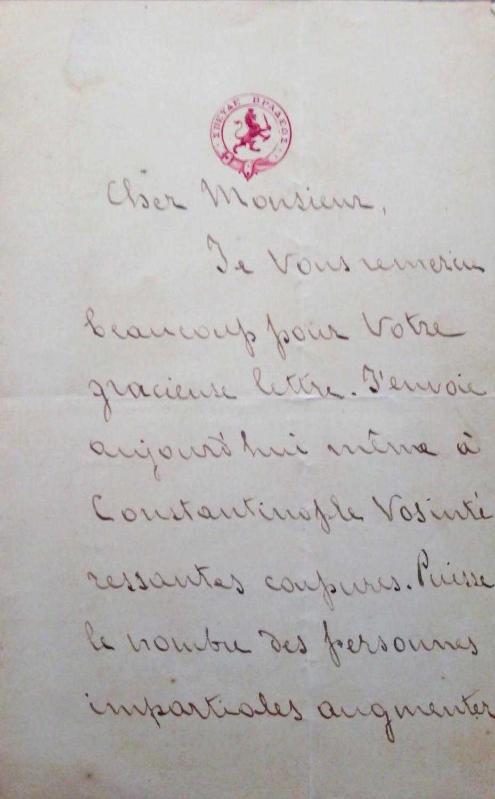 ΣΠΕΥΔΕ ΒΡΑΔΕΩΣ
Cher Monsieur,
Je Vous remercie
beaucoup pour Votre
gracieuse lettre. J'envoie
aujourd'hui même à
Constantinople Vos inté
ressantes coupures. Puisse
le nombre des personnes
impartiales augmenter